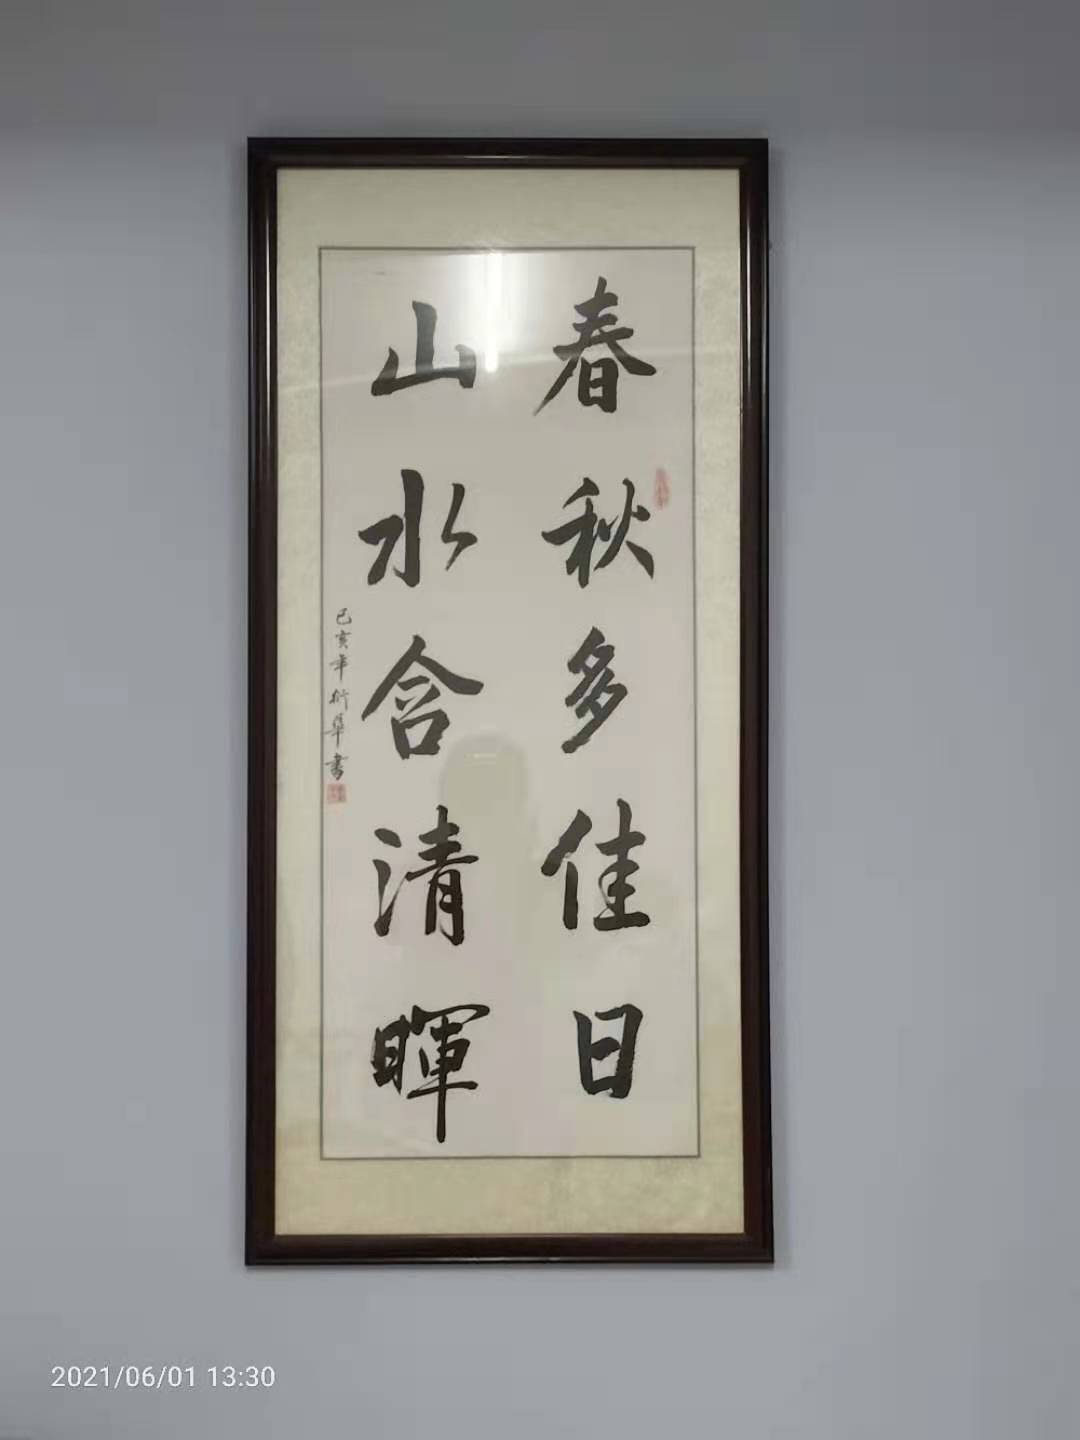 春秋多佳日
山水含清暉
己亥年衍華書
2021/06/01 13:30